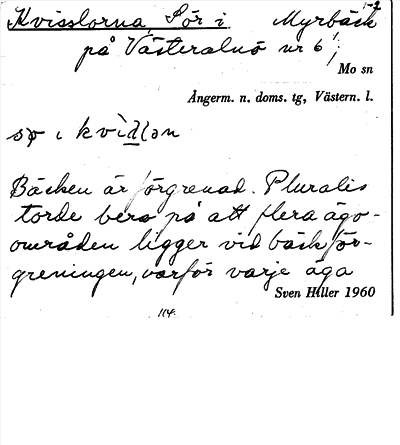 Kvisslorna, Sör i Myrbäck 1-2
på Västeralnö nr 6';
Mo sn
Ångerm. n. doms. tg, Västern. l.
sø i kvid
Bäcken är förgrenad. Pluralis
torde bero på att flera ägo-
områden ligger vid bäckför-
greningen, varför varje äga
Sven Hiller 1960
114.